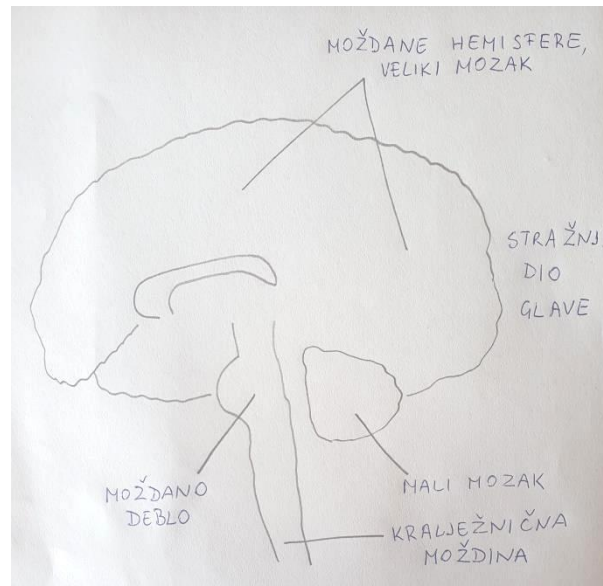 MOŽDANE HEMISFERE,
VELIKI MOZAK
STRAŽNJ
DIO
GLAVE
MOŽDANO
DEBLO
MALI MOZAK
KRALJEŽNIČNA
MOŽDINA